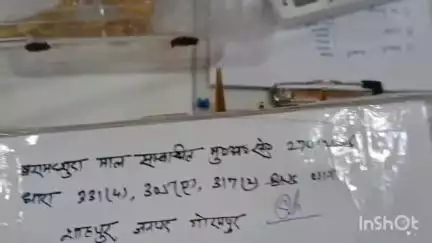 बरामदशुदा माल सम्बन्धित मु०अ०सं०
धारा 331(4), 305(ए), 317(2) BNS थाना
शाहपुर जनपद गोरखपुर
InShOt